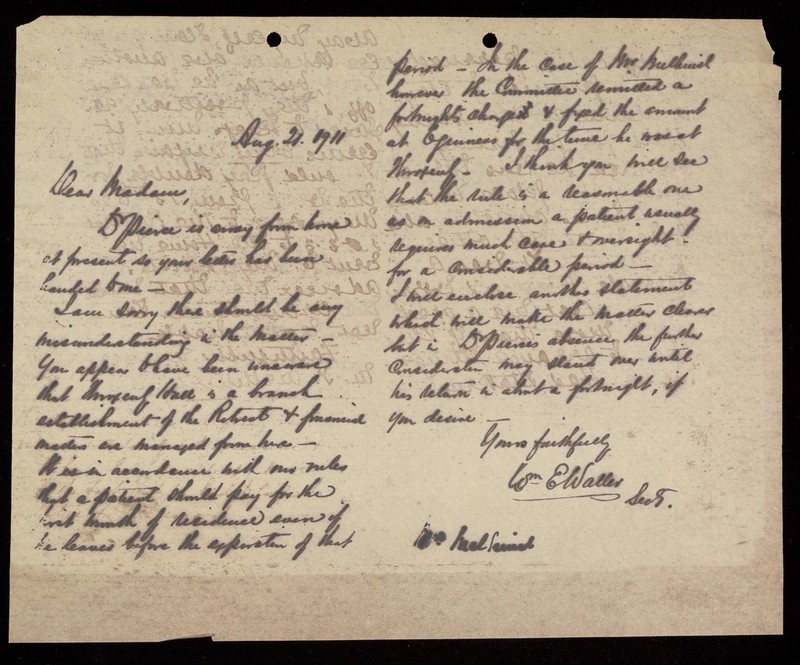 Aug. 21. 1911
Dear Madam,
Dr Pierce is away from home
at present so your letter has been
handed to me —
I am sorry there should be any
misunderstanding in the matter —
You appear to have been unaware
that Throxenby Hall is a branch
establishment of the Retreat & financial
matters are managed from here —
It is in accordance with our rules
that a patient should pay for the
first month of residence even if
he leaves before the expiration of that
period — In the case of Mr
however the Committee remitted a
fortnight's charges & fixed the amount
at 6 guineas for the time he was at
Throxenby — I think you will see
that the rule is a reasonable one
as on admission a patient usually
requires much care & oversight
for a considerable period —
I will enclose another statement
which will make the matter clearer
but in Dr Pierce's absence the further
consideration may stand over until
his return in about a fortnight, if
you desire —
Yours faithfully
Wm E Waller
Sect.